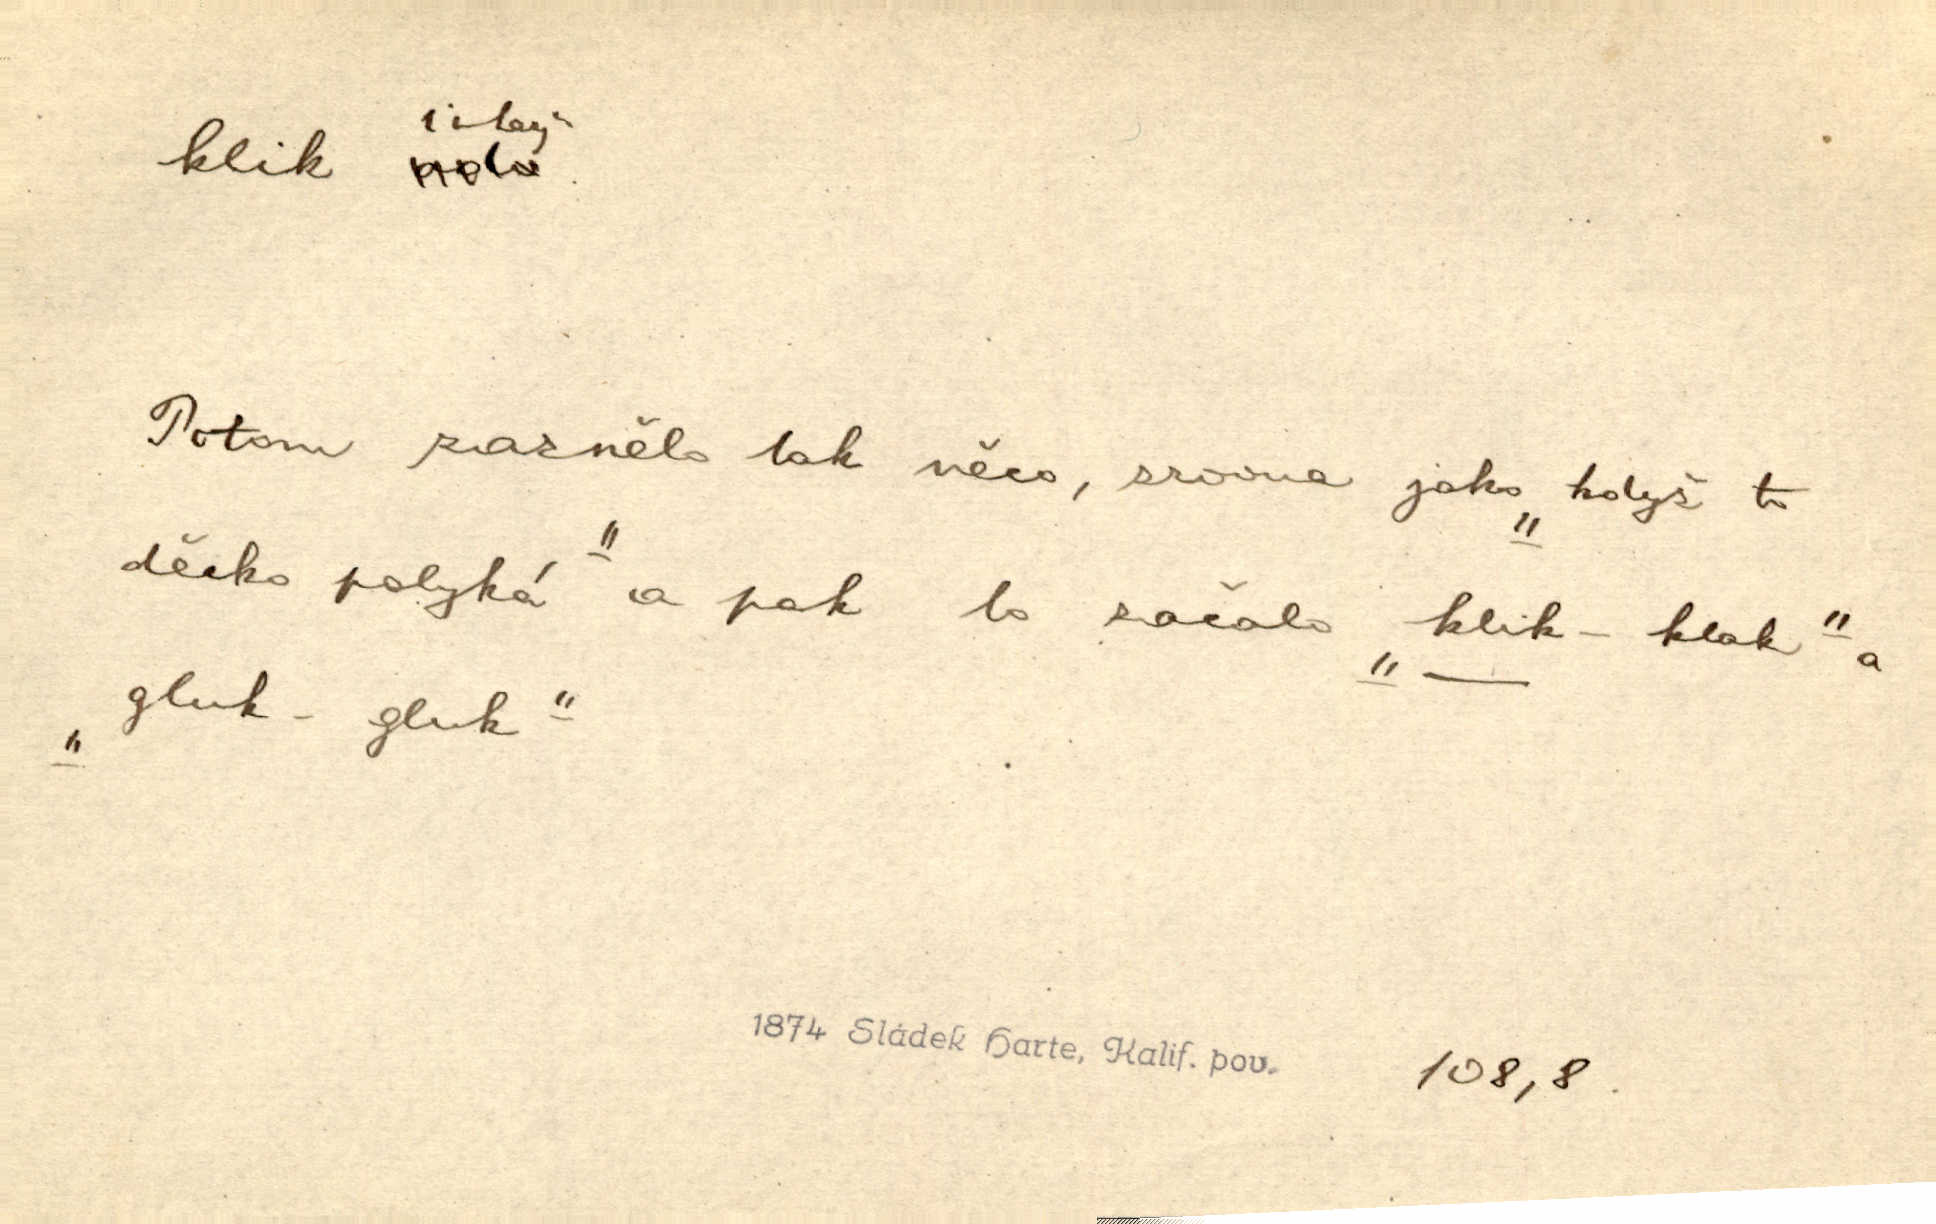 klik
Potom zaznělo tak něco, srovna jako „když to
děcko polyká“ a pak to začalo „klik - klak“ a
„gluk - gluk“
1874 Sládek Harte, Kalif. pov. 108,8